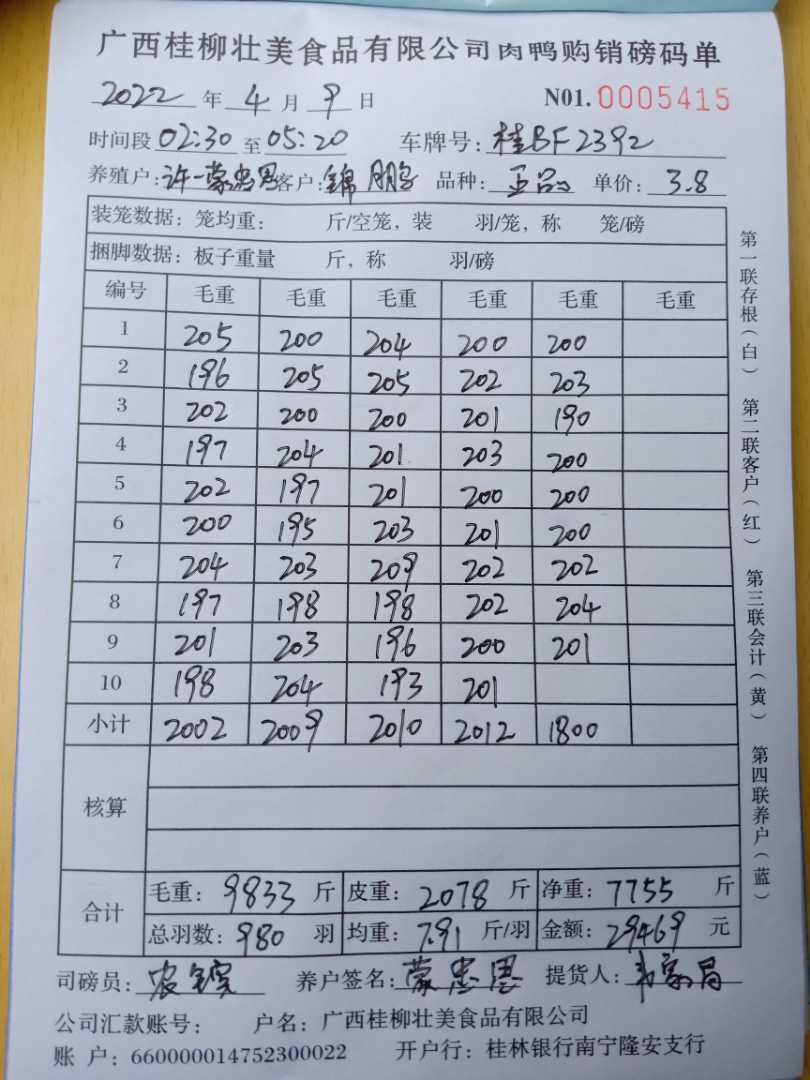 广西桂柳壮美食品有限公司肉鸭购销磅码单
2022 年 4 月 9 日 N01. 0005415
时间段 02:30 至 05:20 车牌号: 桂BF2392
养殖户: 许一蒙忠恩 客户: 锦鹏 品种: 王品 单价: 3.8
装笼数据: 笼均重: 斤/空笼, 装 羽/笼, 称 笼/磅
捆脚数据: 板子重量 斤, 称 羽/磅
编号 毛重 毛重 毛重 毛重 毛重 毛重
1 205 200 204 200 200
2 196 205 205 202 203
3 202 200 200 201 190
4 197 204 201 203 200
5 202 197 201 200 200
6 200 195 203 201 200
7 204 203 209 202 202
8 197 198 198 202 204
9 201 203 196 200 201
10 198 204 193 201
小计 2002 2009 2010 2012 1800
核算
合计
毛重: 9833 斤 皮重: 2078 斤 净重: 7755 斤
总羽数: 980 羽 均重: 7.91 斤/羽 金额: 29469 元
司磅员: 农 养户签名: 蒙忠恩 提货人:
公司汇款账号: 户名: 广西桂柳壮美食品有限公司
账 户: 660000014752300022 开户行: 桂林银行南宁隆安支行
第一联存根(白)
第二联客户(红)
第三联会计(黄)
第四联养户(蓝)